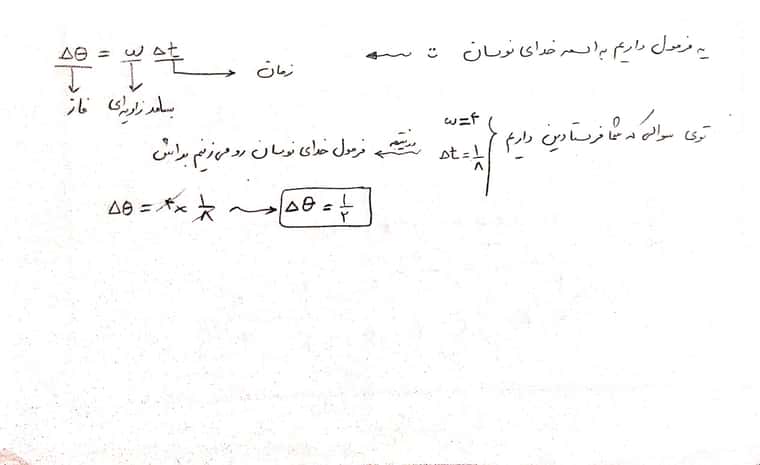 یه فرمول داریم به اسم خدای نوسان :
Δθ = ω Δt
زمان
بسامد زاویه‌ای
فاز
توی سوالی که شما فرستادین داریم
ω=۴
Δt = ۱/۸
در نتیجه فرمول خدای نوسان رو می‌زنیم براش
Δθ = ۴ × ۱/۸ → Δθ = ۱/۲